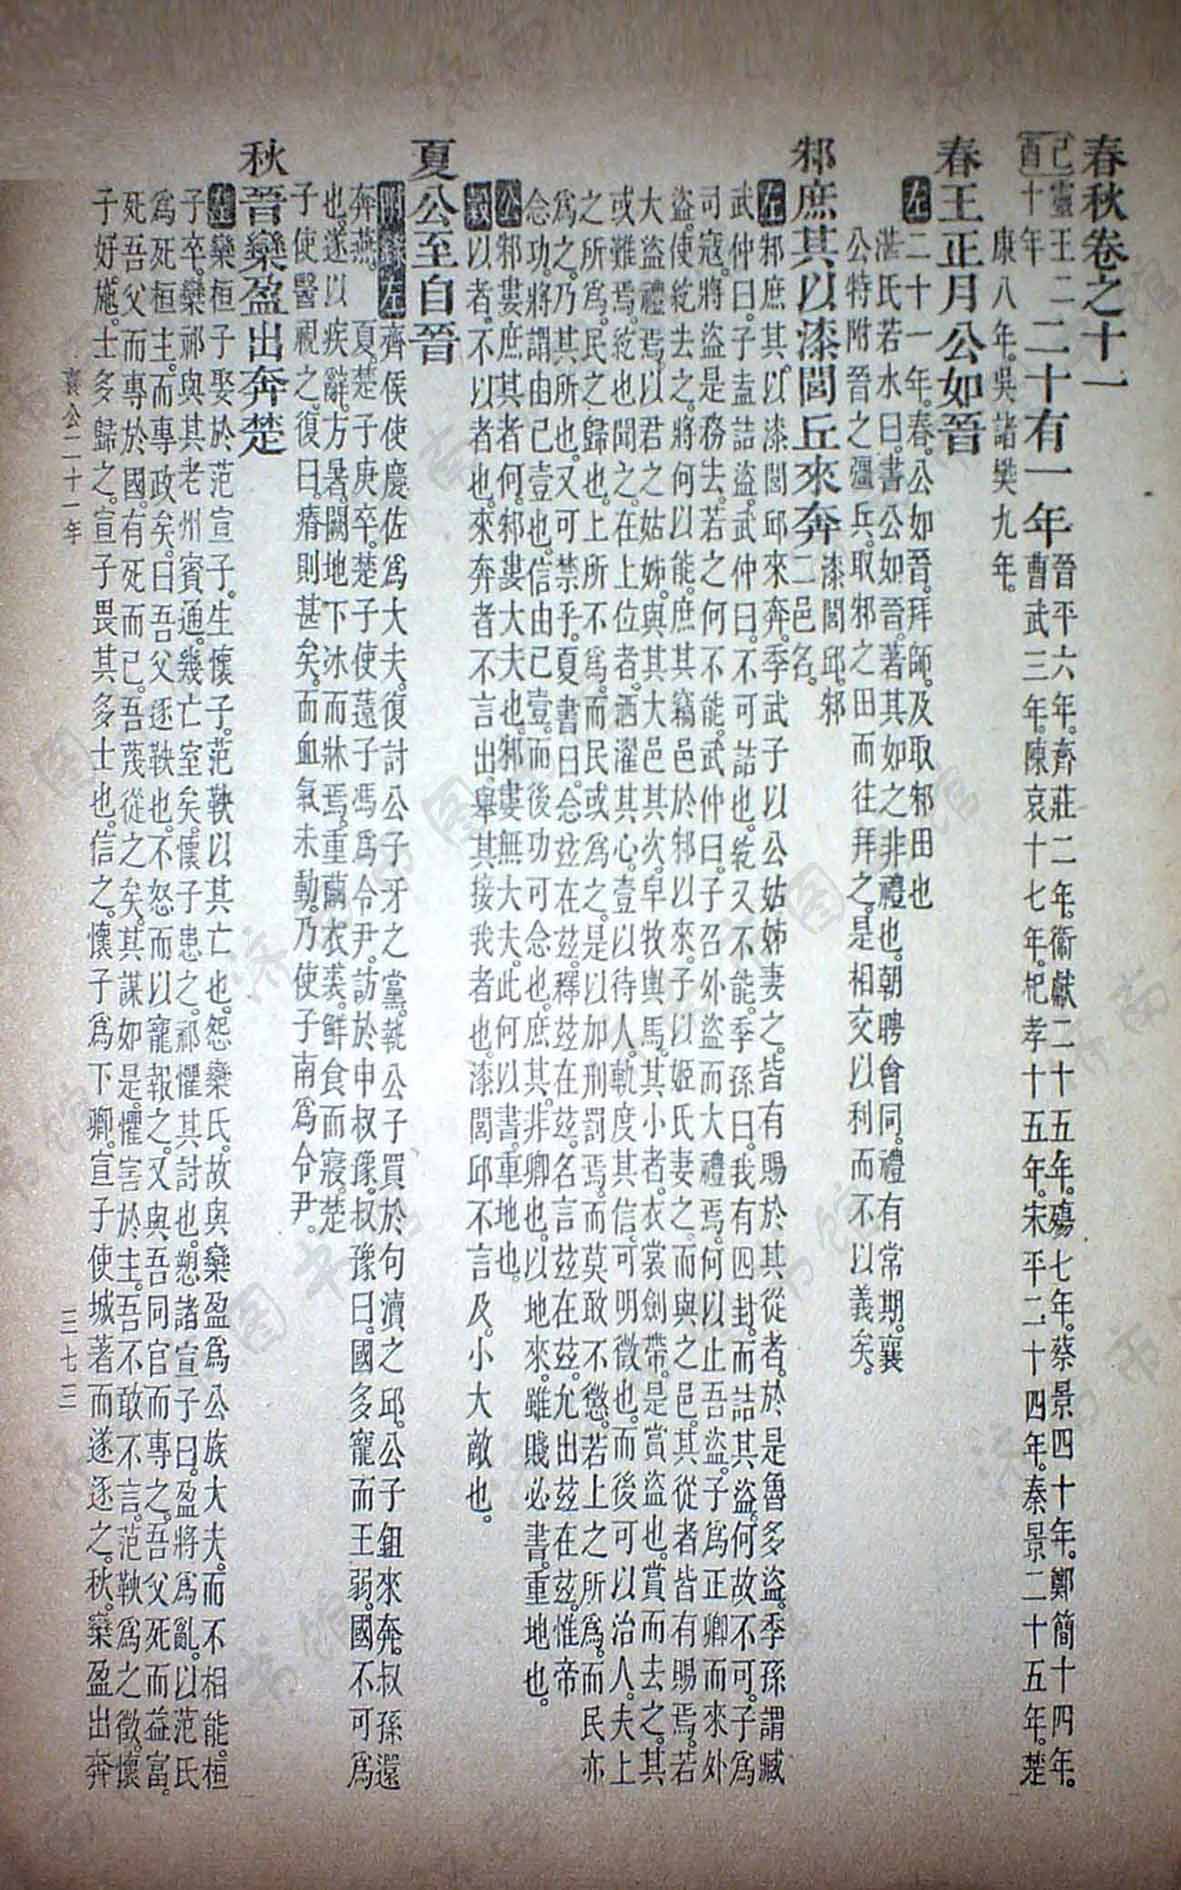 春秋卷之十一
己酉 靈王二十年 二十有一年 晉平六年。齊莊二年。衞獻二十五年。殤七年。蔡景四十年。鄭簡十四年。
曹武三年。陳哀十七年。杞孝十五年。宋平二十四年。秦景二十五年。楚
康八年。吳諸樊九年。
春王正月公如晉
左 二十一年。春。公如晉。拜師。及取邾田也
湛氏若水曰。書公如晉。著其如之非禮也。朝聘會同。禮有常期。襄
公特附晉之彊兵。取邾之田而往拜之。是相交以利而不以義矣。
邾庶其以漆閭丘來奔 漆閭邱。邾
二邑名。
左 邾庶其以漆閭邱來奔。季武子以公姑姊妻之。皆有賜於其從者。於是魯多盜。季孫謂臧
武仲曰。子盍詰盜。武仲曰。不可詰也。紇又不能。季孫曰。我有四封。而詰其盜。何故不可。子爲
司寇。將盜是務去。若之何不能。武仲曰。子召外盜而大禮焉。何以止吾盜。子爲正卿而來外
盜。使紇去之。將何以能。庶其竊邑於邾以來。子以姬氏妻之。而與之邑。其從者皆有賜焉。若
大盜禮焉。以君之姑姊。與其大邑。其次。皁牧輿馬。其小者。衣裳劍帶。是賞盜也。賞而去之。其
或難焉。紇也聞之。在上位者。洒濯其心。壹以待人。軌度其信。可明徵也。而後可以治人。夫上
之所爲。民之歸也。上所不爲。而民或爲之。是以加刑罰焉。而莫敢不懲。若上之所爲。而民亦
爲之。乃其所也。又可禁乎。夏書曰。念茲在茲。釋茲在茲。名言茲在茲。允出茲在茲。惟帝
念功。將謂由己壹也。信由己壹。而後功可念也。庶其。非卿也。以地來。雖賤必書。重地也。
公 邾婁庶其者何。邾婁大夫也。邾婁無大夫。此何以書。重地也。
穀 以者。不以者也。來奔者不言出。舉其接我者也。漆閭邱不言及。小大敵也。
夏公至自晉
附錄左 齊侯使慶佐爲大夫。復討公子牙之黨。執公子買於句瀆之邱。公子鉏來奔。叔孫還
奔燕。 夏。楚子庚卒。楚子使薳子馮爲令尹。訪於申叔豫。叔豫曰。國多寵而王弱。國不可爲
也。遂以疾辭。方暑。闕地下冰而牀焉。重繭衣裘。鮮食而寢。楚
子使醫視之。復曰。瘠則甚矣。而血氣未動。乃使子南爲令尹。
秋晉欒盈出奔楚
左 欒桓子娶於范宣子。生懷子。范鞅以其亡也。怨欒氏。故與欒盈爲公族大夫。而不相能。桓
子卒。欒祁與其老州賓通。幾亡室矣。懷子患之。祁懼其討也。愬諸宣子曰。盈將爲亂。以范氏
爲死桓主。而專政矣。曰吾父逐鞅也。不怒而以寵報之。又與吾同官而專之。吾父死而益富。
死吾父而專於國。有死而已。吾蔑從之矣。其謀如是。懼害於主。吾不敢不言。范鞅爲之徵。懷
子好施。士多歸之。宣子畏其多士也。信之。懷子爲下卿。宣子使城著而遂逐之。秋。欒盈出奔
襄公二十一年
三七三